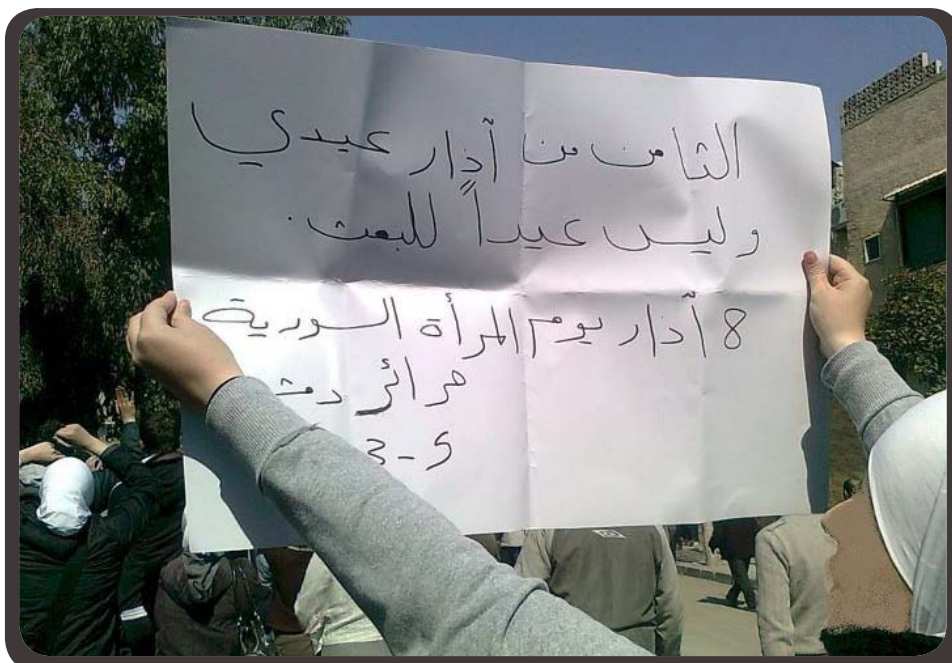 الثامن من أذار عيدي
وليس عيداً للبعث.
8 أذار يوم المرأة السورية
حرائر
5-3